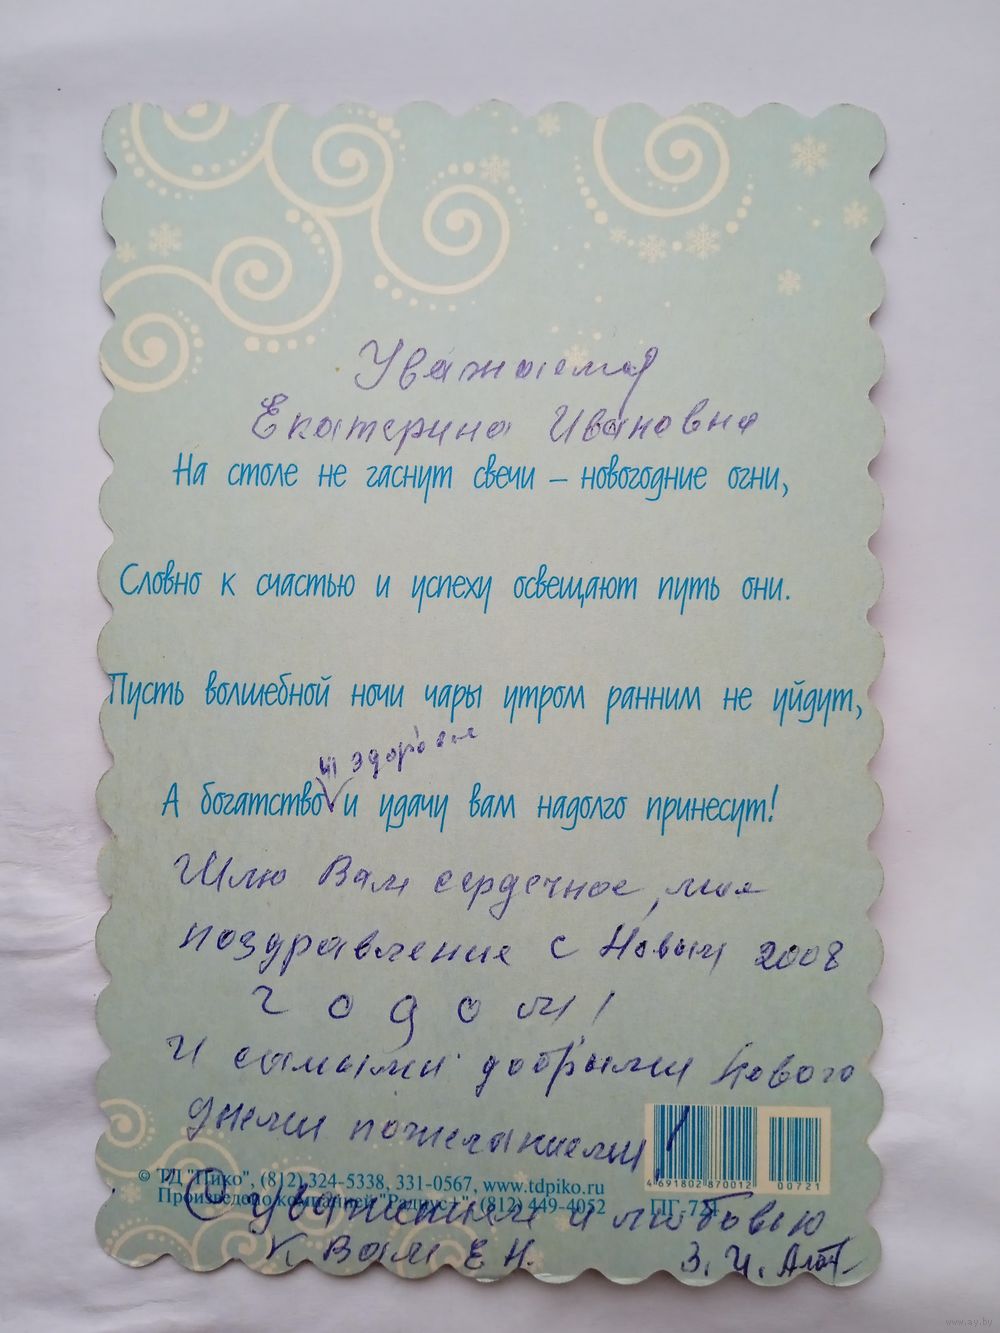 Уважаемая
Екатерина Ивановна
На столе не гаснут свечи – новогодние огни,
Словно к счастью и успеху освещают путь они.
Пусть волшебной ночи чары утром ранним не уйдут,
и здоровье
А богатство и удачу вам надолго принесут!
Шлю Вам сердечное
поздравление с Новым 2008
годом!
И самыми добрыми Нового
днеми пожеланиеми!
© ТД "Пико", (812) 324-5338, 331-0567, www.tdpiko.ru
Произведено компанией "Радиус +", (812) 449-4052 ПГ-721
4 691802 870012 00721
С уважением и любовью
к Вам Е Н. З. И.
www.ay.by